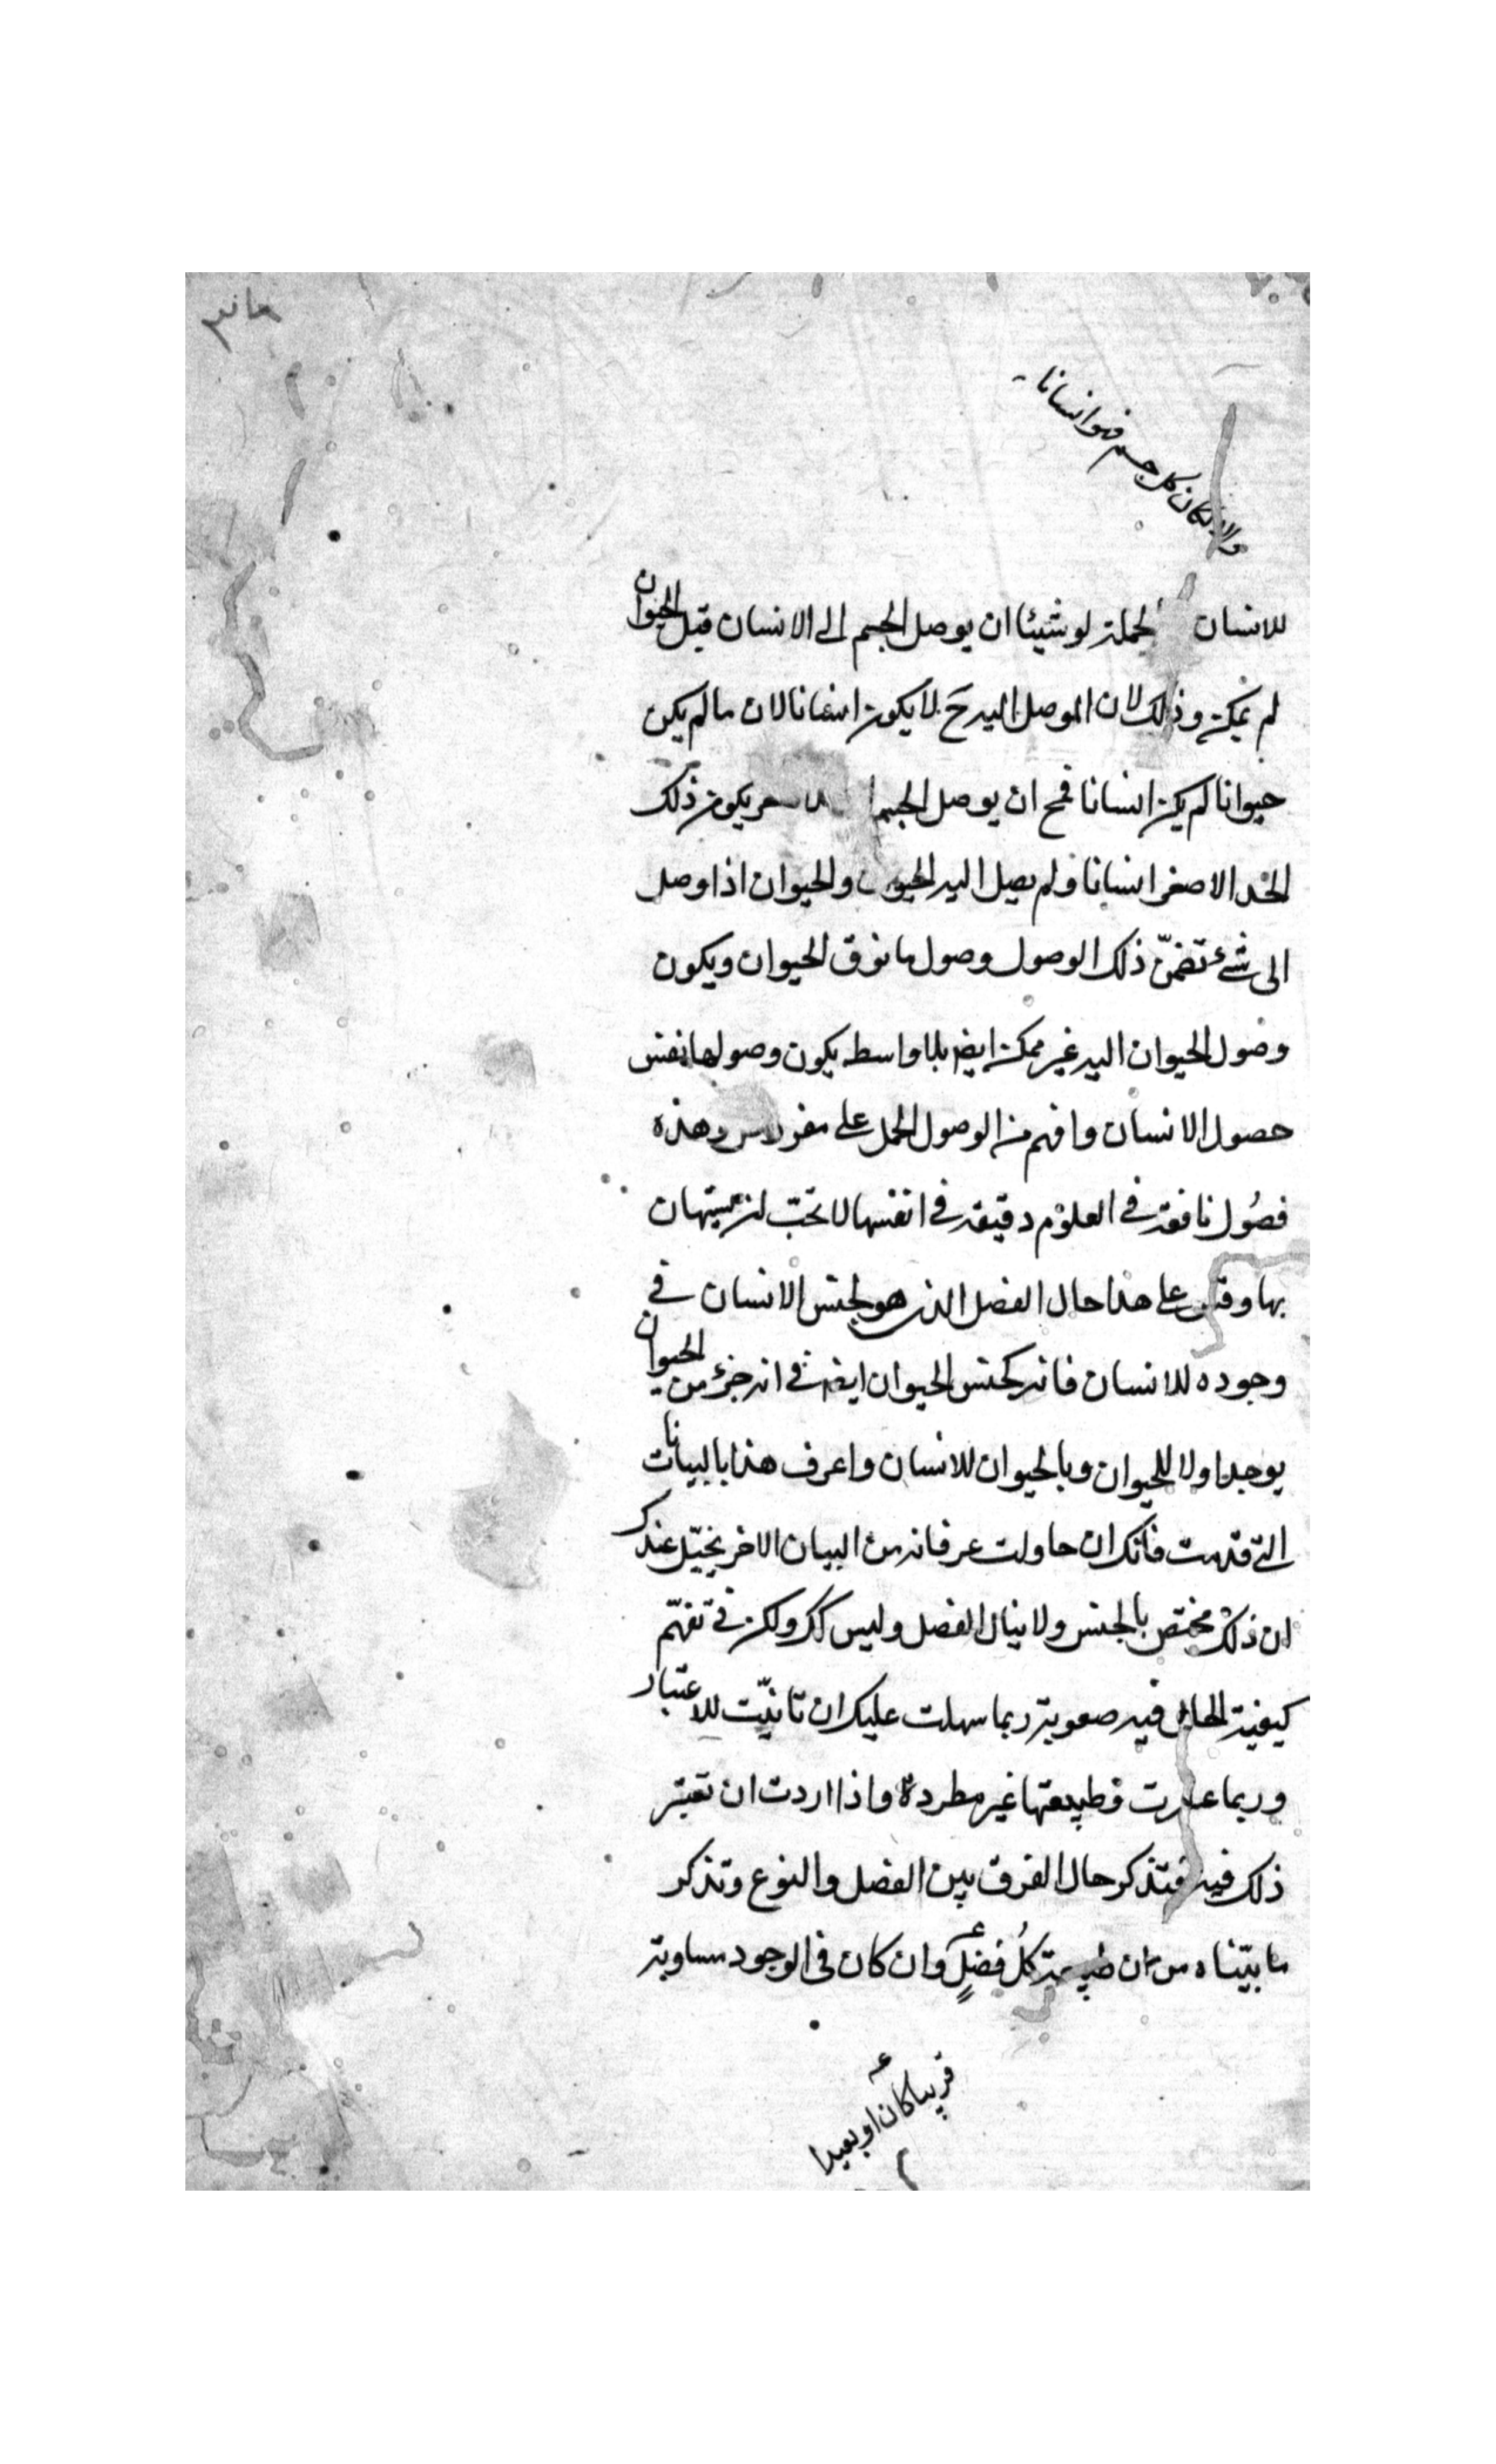 والا لكان كل جسم فهو انسانا
للانسان لجملة لو شيئا ان يوصل الجسم الى الانسان قبل الحيوان
لم يمكن وذلك لان الموصل اليه ح لا يكون انسانا لان ما لم يكن
حيوانا لم يكن انسانا فمح ان يوصل الجسم يكون ذلك
الحد الاصغر انسانا ولم يصل اليه الحيوان والحيوان اذا وصل
الى شئ تضمّن ذلك الوصول وصول ما فوق الحيوان ويكون
وصول الحيوان اليه غير ممكن ايضا بلا واسطه يكون وصولها نفس
حصول الانسان وافهم من الوصول الحمل على مفروس وهذه
فصُول نافعة في العلوْم دقيقة في انفسها لا تحبّ ان يستهان
بها وقس على هذا حال الفصل الذى هو لجنس الانسان في
وجوده للانسان فانه كجنس الحيوان ايضا في انه جزئ من الحيوان
يوجد اولا للحيوان وبالحيوان للانسان واعرف هذا بالبيانات
التى قدمت فانّك ان حاولت عرفانه من البيان الاخر يخيّل عندك
ان ذلك مختصّ بالجنس ولا ينال الفصل وليس كك ولكن في تفهّم
كيفية الحال فيه صعوبة ربما سهلت عليك ان تانيّت للاعتبار
وربما عسرت فطبيعتها غير مطردة واذا اردت ان تعتبر
ذلك فيه فتذكر حال الفرق بين الفصل والنوع وتذكر
ما بيّناه من ان طبيعة كُل فصلٍ وان كان فى الوجود مساوية
قريبا كان او بعيدا